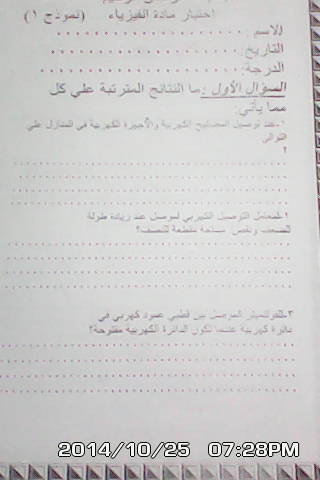 اختبار مادة الفيزياء (نموذج ١)
الاسم:
التاريخ:
الدرجة:
السؤال الأول: ما النتائج المترتبة علي كل
مما يأتي:
١-عند توصيل المصابيح الكهربية والأجهزة الكهربية في المنازل علي
التوالي
؟
٢-لمعامل التوصيل الكهربي لموصل عند زيادة طوله
للضعف ونقص مساحة مقطعه للنصف؟
٣-لفولتميتر الموصل بين قطبي عمود كهربي في
دائرة كهربية عندما تكون الدائرة الكهربية مفتوحة؟
2014/10/25 07:28PM